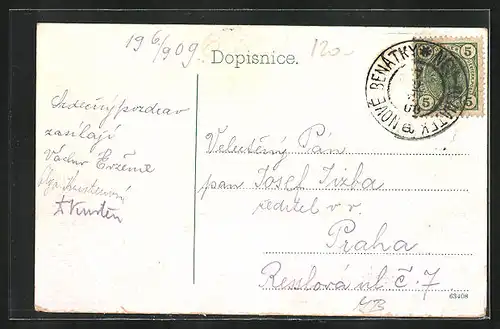 19 6/9 09
Dopisnice.
120-
NOVÉ BENÁTKY
5 5
Srdečný pozdrav
zasílají
Václav
Velectěný Pán
pan Josef Jizba
ředitel v. v.
Praha
Resslová ul č. 7.
63408